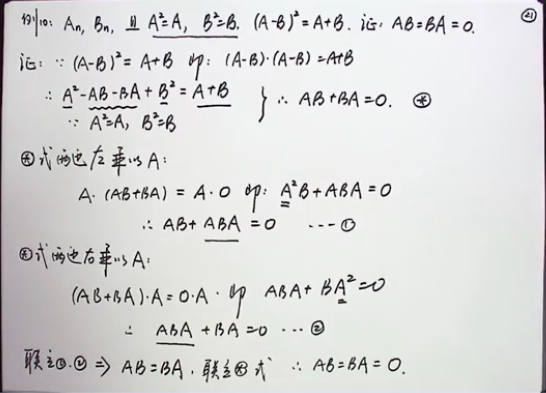 例10: Aₙ, Bₙ, 且 A²=A, B²=B. (A-B)²=A+B. 证: AB=BA=0. ㉑
证: ∵ (A-B)² = A+B 即: (A-B)·(A-B) = A+B
∴ A²-AB-BA+B² = A+B } ∴ AB+BA=0. ⊛
∵ A²=A, B²=B
⊛式两边左乘以A:
A·(AB+BA) = A·0 即: A²B+ABA=0
∴ AB+ABA=0 ---①
⊛式两边右乘以A:
(AB+BA)·A=0·A· 即 ABA+BA²=0
∴ ABA+BA=0 ···②
联立①.② ⇒ AB=BA, 联立⊛式 ∴ AB=BA=0.